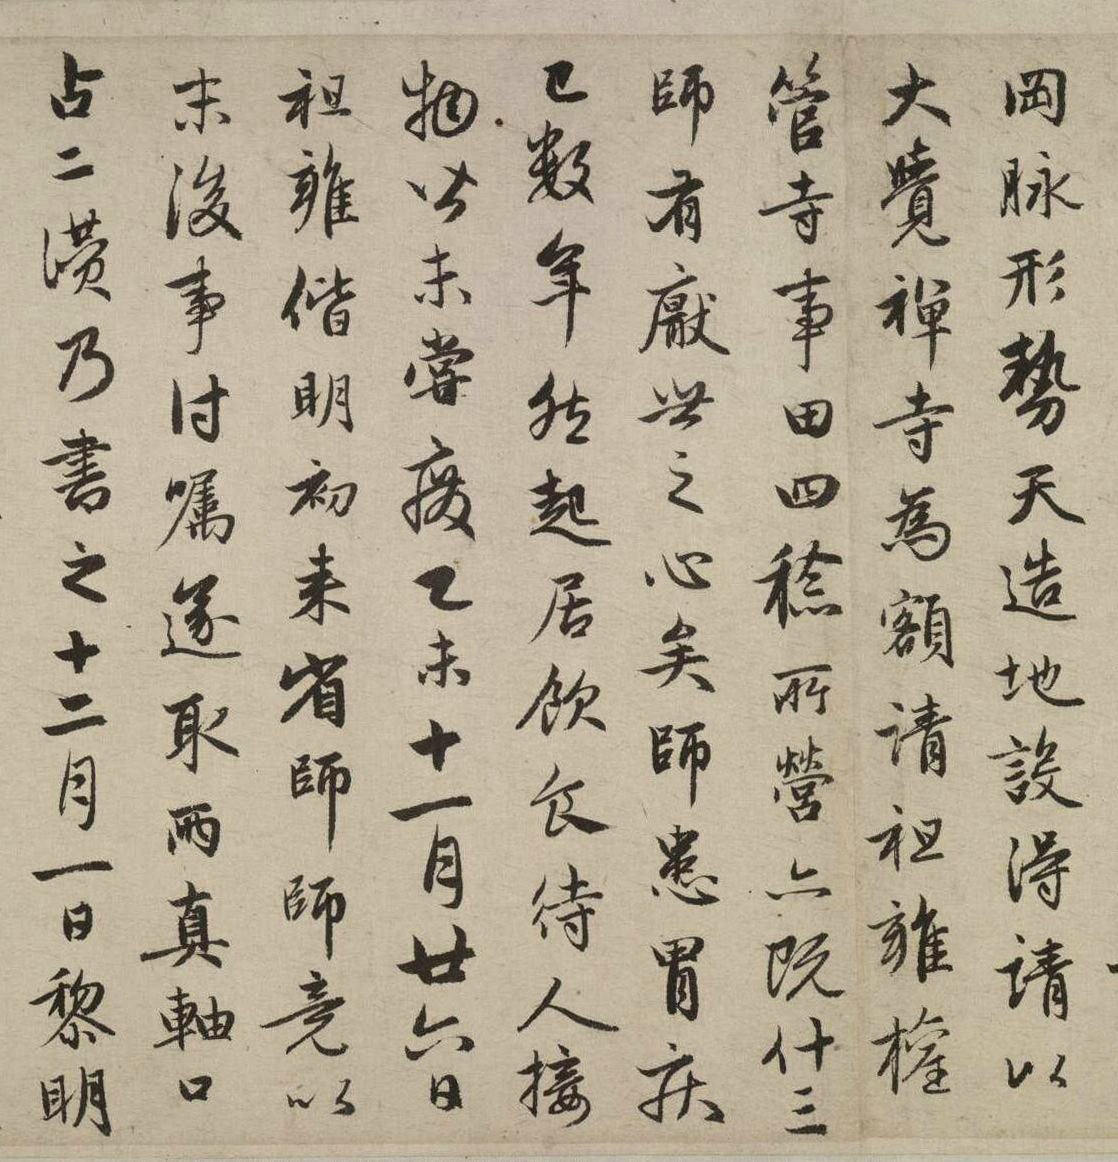 岡脉形勢天造地設得請以
大覺禪寺為額請祖雍權
管寺事田四稔所營亦既什三
師有厭世之心矣師患胃疾
已數年然起居飲食待人接
物皆未嘗廢乙未十一月廿六日
祖雍偕明初来省師師竟以
末後事付囑遂取兩真軸口
占二讚乃書之十二月一日黎明